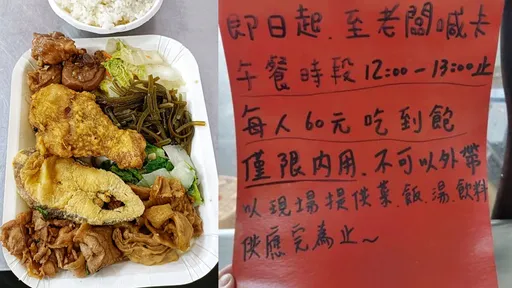 即日起.至老闆喊卡
午餐時段12:00-13:00止
每人60元吃到飽
僅限內用.不可以外帶
以現場提供菜.飯.湯.飲料
供應完為止~